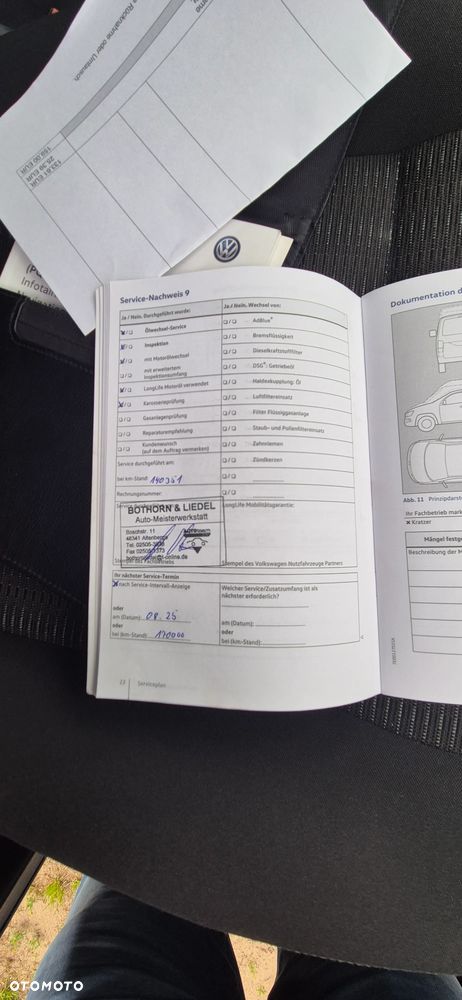 e Rücknahme oder Umtausch
133,61 EUR
25,39 EUR
159,00 EUR
Infotai
Service-Nachweis 9
Ja / Nein. Durchgeführt wurde:
Ölwechsel-Service
Inspektion
mit Motorölwechsel
mit erweitertem
Inspektionsumfang
LongLife Motoröl verwendet
Karosserieprüfung
Gasanlagenprüfung
Reparaturempfehlung
Kundenwunsch
(auf dem Auftrag vermerken)
Service durchgeführt am:
bei km-Stand: 140351
Rechnungsnummer:
Ja / Nein. Wechsel von:
AdBlue®
Bremsflüssigkeit
Dieselkraftstofffilter
DSG®: Getriebeöl
Haldexkupplung: Öl
Luftfiltereinsatz
Filter Flüssiggasanlage
Staub- und Pollenfiltereinsatz
Zahnriemen
Zündkerzen
BOTHORN & LIEDEL
Auto-Meisterwerkstatt
Boschstr. 11
48341 Altenberge
Tel. 02505-
Fax 02505-
Stempel des Fachbetriebs
LongLife Mobilitätsgarantie:
Stempel des Volkswagen Nutzfahrzeuge Partners
Ihr nächster Service-Termin
nach Service-Intervall-Anzeige
oder
am (Datum): 08.25
oder
bei (km-Stand): 170000
Welcher Service/Zusatzumfang ist als
nächster erforderlich?
am (Datum):
oder
bei (km-Stand):
23 Serviceplan
Dokumentation d
Abb. 11 Prinzipdarst
Ihr Fachbetrieb mark
× Kratzer
Mängel festg
Beschreibung der M
OTOMOTO